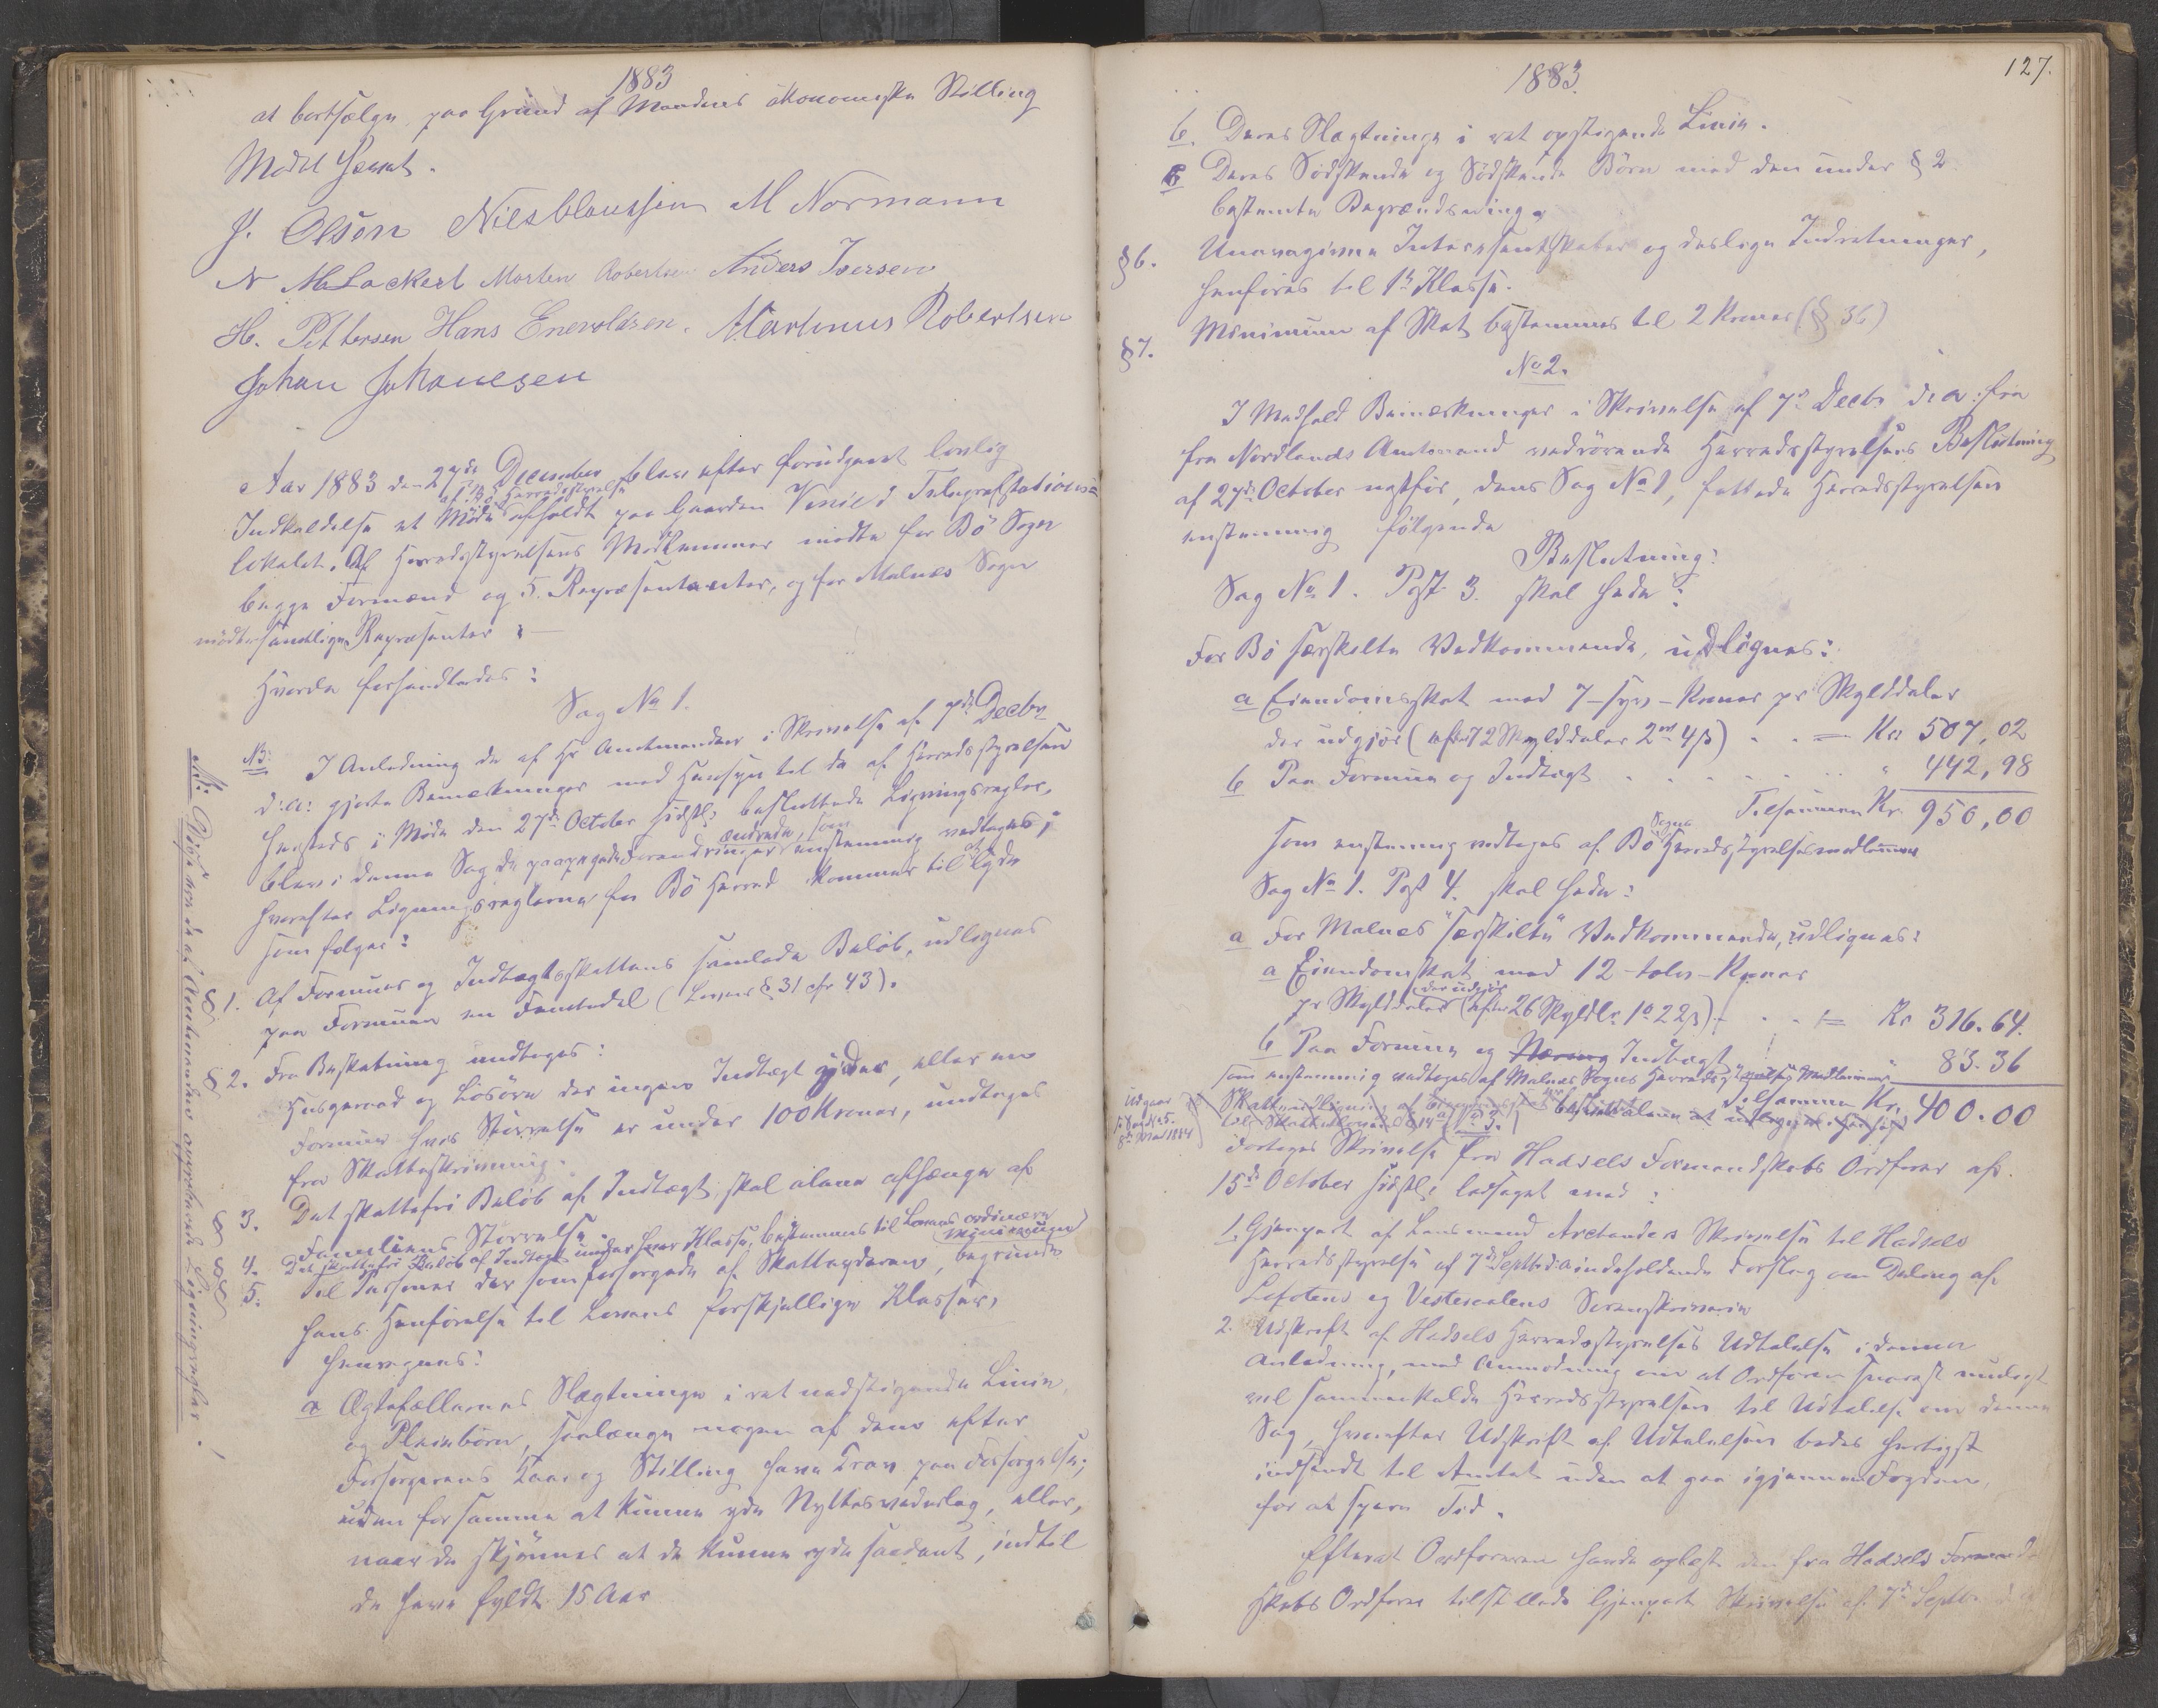 1883
at bortsælge paa Grund af Mandens økonomiske Stilling
Mødet hævet.
J. Olsen Niels Claussen M Normann
N M Lockert Morten Robertsen Anders Iversen
H. Pettersen Hans Enevoldsen. Martinus Robertsen
Johan Johanesen
Aar 1883 den 27de December blev efter forudgaaet lovlig
Indkaldelse et Møde af Bø Herredsstyrelse afholdt paa Gaarden Vinje i Telegrafstations-
lokalet. Af Herredsstyrelsens Medlemmer mødte for Bø Sogn
begge Formænd og 5. Repræsentanter, og for Malnes Sogn
mødte samtlige Repræsenter :—
Hvorda forhandledes:
Sag No 1.
NB: I Anledning de af Hr Amtmanden i Skrivelse af 7de Decbr
d:A: gjorte Bemerkninger med Hensyn til de af Herredsstyrelsen
hersteds i Møde den 27de October sidstl: besluttede Ligningsregler,
blev i denne Sag de paapegede Forandringer ændrede, som enstemmig vedtoges;
hvorefter Ligningsreglerne for Bø Herred kommer til at lyde
som følger:
§ 1. Af Formues og Indtægtsskattens samlede Beløb, udlignes
paa Formuen en Femtedel (Lovens § 31 cfr 43).
§ 2. Fra Beskatning undtages:
Husgeraad og Løsøre der ingen Indtægt yder, eller en
Formue hvis Størrelse er under 100 Kroner, undtages
fra Skattebeskrivning.
§ 3. Det skattefri Beløb af Indtægt, skal alene afhænge af
Familiens Størrelse.
§ 4. Det skattefri Beløb af Indtægt under hver Klasse, bestemmes til Lovens ordinære
§ 5. Til Personer der som forsørgede af Skatteyderen, begrunde
hans Henførelse til Lovens forskjellige Klasser,
henregnes:
a Ægtefællernes Slægtninge i ret nedstigende Linie,
og Pleiebørn, saalænge nogen af dem efter
Forsørgerens Kaar og Stilling have Krav paa Forsørgelse;
uden for samme at kunne yde Nyttesvederlag, eller,
naar de skjønnes at de kunne yde saadant, indtil
de have fyldt 15 Aar
1883.
127.
b. Deres Slægtninge i ret opstigende Linie.
c Deres Sødskende og Sødskende Børn med den under § 2
bestemte Begrændsning.
§6. Unavngivne Interessentskaber og deslige Indretninger,
henføres til 1ste Klasse.
§7. Minimum af Skat bestemmes til 2 Kroner (§ 36)
No 2.
I Medhold Bemærkninger i Skrivelse af 7de Decbr d: a: fra
fra Nordlands Amtmand vedrørende Herredsstyrelsens Beslutning
af 27de October næstfør, dens Sag No 1, fattede Herredsstyrelsen
enstemmig følgende
Beslutning:
Sag No 1. Post 3. skal hede:
For Bø særskilte Vedkommende, udlignes:
a Eiendomsskat med 7 - syv - Kroner pr Skylddaler
der udgjør (efter 72 Skylddaler 2 ort 4 ß) . . = Kr 507,02
b Paa Formue og Indtægt . . . . . . " 442,98
Tilsammen Kr. 950,00
som enstemmig vedtoges af Bø Sogns Herredsstyrelsesmedlemmer
Sag No 1. Post 4. skal hede:
a For Malnes "særskilte" Vedkommende, udlignes:
a Eiendomsskat med 12 - tolv - Kroner
pr Skylddaler der udgjør (efter 26 Skyldlr. 1 o 22 ß) . . = Kr 316.64.
b Paa Formue og Næring Indtægt " 83.36
som enstemmig vedtoges af Malnes Sogns Herredsstyrelses Medlemmer
Tilsammen Kr. 400.00
Udgaar
8de Mai 1884
No 3.
Foretoges Skrivelse fra Hadsels Formandskabs Ordfører af
15de October sidstl: ledsaget med:
1 Gjenpart af Lensmand Arctanders Skrivelse til Hadsels
Herredsstyrelse af 7de Septbr d:a indeholdende Forslag om Deling af
Lofotens og Vesteraalens Sorenskriveri
2. Udskrift af Hadsels Herredsstyrelses Udtalelse i denne
Anledning, med Anmodning om at Ordføreren snarest muligt
vil sammenkalde Herredsstyrelsen til Udtalelse om denne
Sag, hvorefter Udskrift af Udtalelsen bedes hurtigst
indsendt til Amtet uden at gaa igjennem Fogden,
for at spare Tid.
Efterat Ordføreren havde oplæst den fra Hadsels Formand-
skabs Ordfører tilstillede Gjenpart Skrivelse af 7de Septbr
NB: Disse ere de af Amtmanden approberede Ligningsregler.